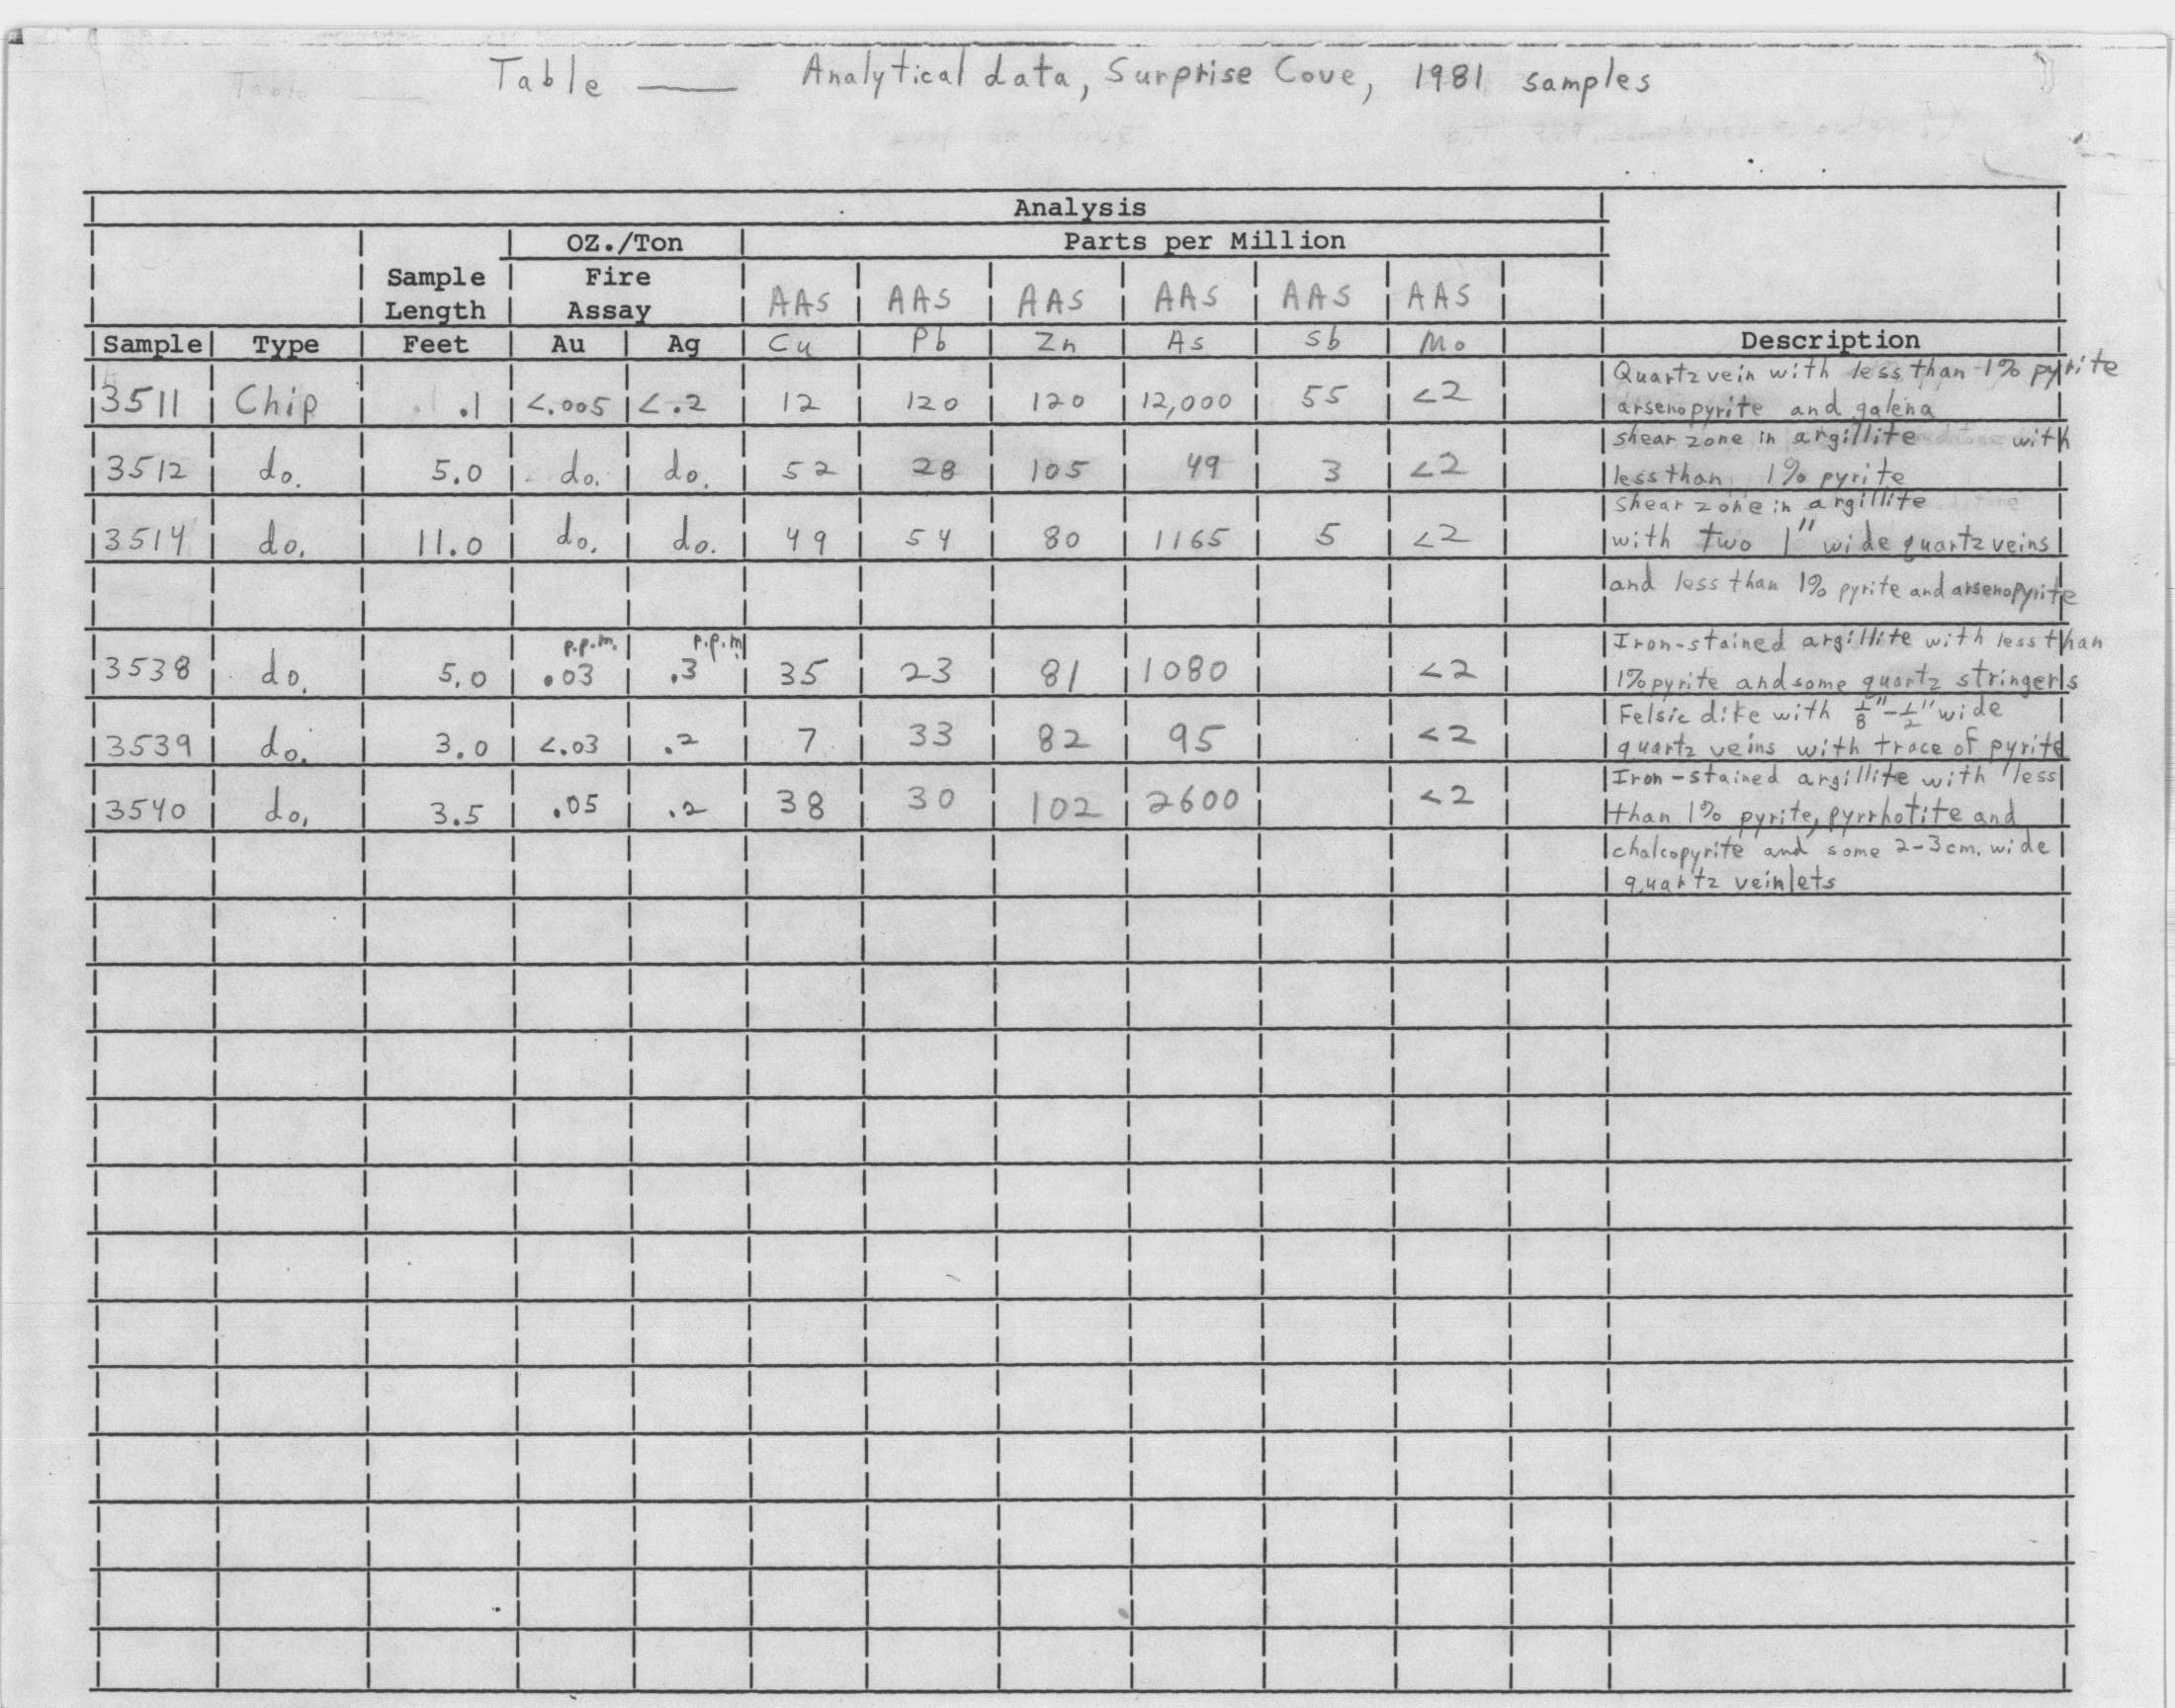 Table — Analytical data, Surprise Cove, 1981 samples
Analysis
OZ./Ton Parts per Million
Sample Fire
Length Assay AAS AAS AAS AAS AAS AAS
Sample Type Feet Au Ag Cu Pb Zn As Sb Mo Description
Quartz vein with less than 1% pyrite
3511 Chip .1 <.005 <.2 12 120 120 12,000 55 <2 arsenopyrite and galena
shear zone in argillite with
3512 do. 5.0 do. do. 52 28 105 49 3 <2 less than 1% pyrite
shear zone in argillite
3514 do. 11.0 do. do. 49 54 80 1165 5 <2 with two 1" wide quartz veins
and less than 1% pyrite and arsenopyrite
p.p.m. p.p.m. Iron-stained argillite with less than
3538 do. 5.0 .03 .3 35 23 81 1080 <2 1% pyrite and some quartz stringers
Felsic dike with 1/8"-1/2" wide
3539 do. 3.0 <.03 .2 7 33 82 95 <2 quartz veins with trace of pyrite
Iron-stained argillite with less
3540 do. 3.5 .05 .2 38 30 102 2600 <2 than 1% pyrite, pyrrhotite and
chalcopyrite and some 2-3cm. wide
quartz veinlets